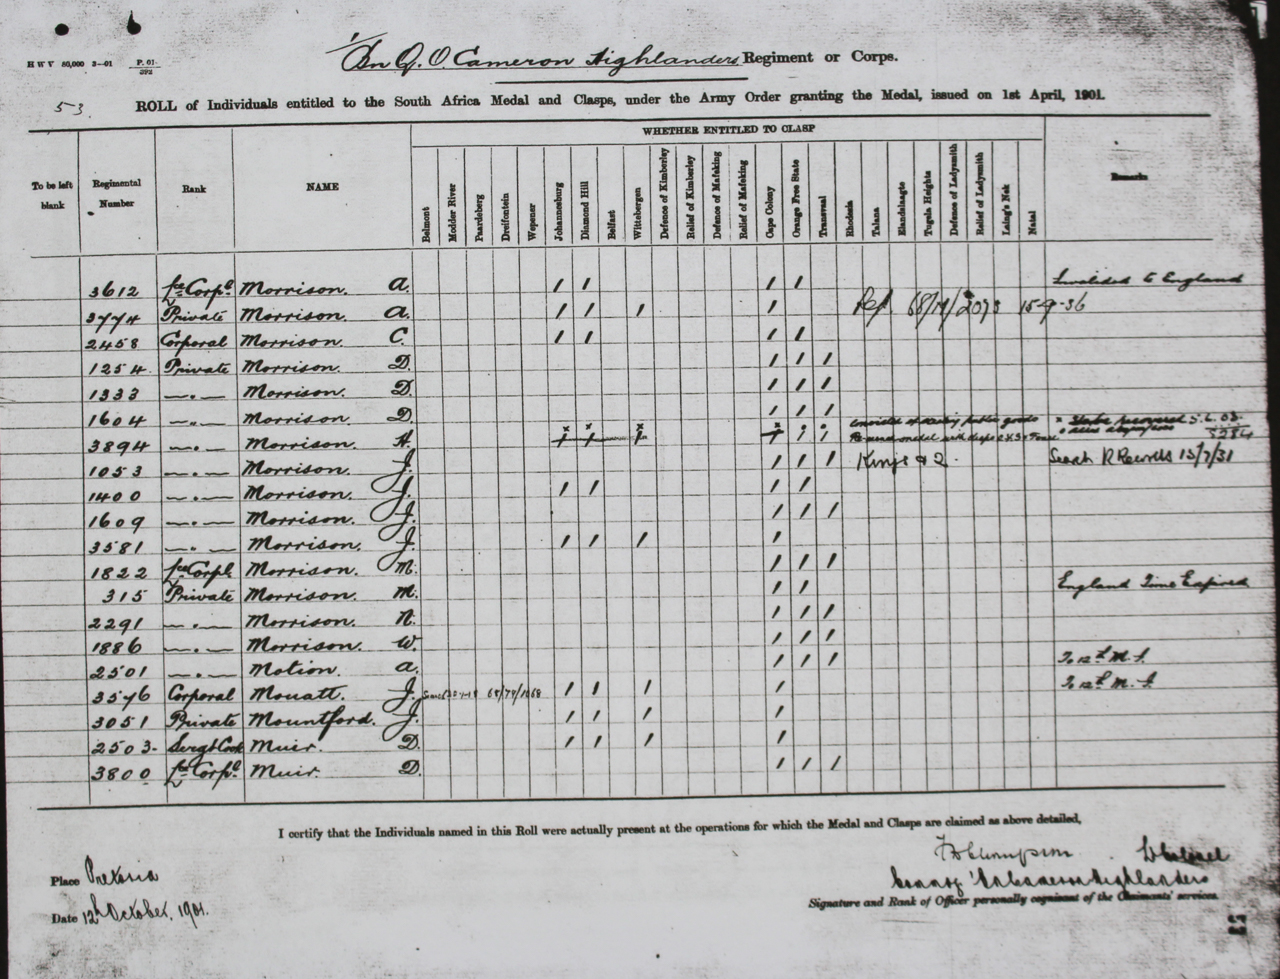 H W V 80,000 3—01 P. 61. 392
1/Bn Q. O. Cameron Highlanders Regiment or Corps.
53. ROLL of Individuals entitled to the South Africa Medal and Clasps, under the Army Order granting the Medal, issued on 1st April, 1901.
WHETHER ENTITLED TO CLASP
To be left blank Regimental Number Rank NAME Belmont Modder River Paardeberg Dreifontein Wepener Johannesburg Diamond Hill Belfast Wittebergen Defence of Kimberley Relief of Kimberley Defence of Mafeking Relief of Mafeking Cape Colony Orange Free State Transvaal Rhodesia Talana Elandslaagte Tugela Heights Defence of Ladysmith Relief of Ladysmith Laing's Nek Natal Remarks
3612 Lce Corpl Morrison. A. / / / / Invalided to England
3774 Private Morrison. A. / / / / Ref. 68/19/2093 15-9-36
2458 Corporal Morrison. C. / / / /
1254 Private Morrison. D. / / /
1333 —"— Morrison. D. / / /
1604 —"— Morrison. D. / / /
3894 —"— Morrison. H. / / / / / / 5284
1053 —"— Morrison. J. / / / Kings & 2. Search R Records 13/7/31
1400 —"— Morrison. J. / / / /
1609 —"— Morrison. J. / / /
3581 —"— Morrison. J. / / / /
1822 Lce Corpl Morrison. M. / / /
315 Private Morrison. M. / / England Time Expired
2291 —"— Morrison. N. / / /
1886 —"— Morrison. W. / / /
2501 —"— Motion. A. / / / To 12th M. I.
3576 Corporal Mouatt. J. 68/79/1068 / / / / To 12th M. I.
3051 Private Mountford. J. / / / /
2503- Sergt Cook Muir. D. / / / /
3800 Lce Corpl Muir. D. / / /
I certify that the Individuals named in this Roll were actually present at the operations for which the Medal and Clasps are claimed as above detailed,
Place Pretoria
Date 12th October, 1901.
Cameron Highlanders
Signature and Rank of Officer personally cognisant of the Claimants' services.